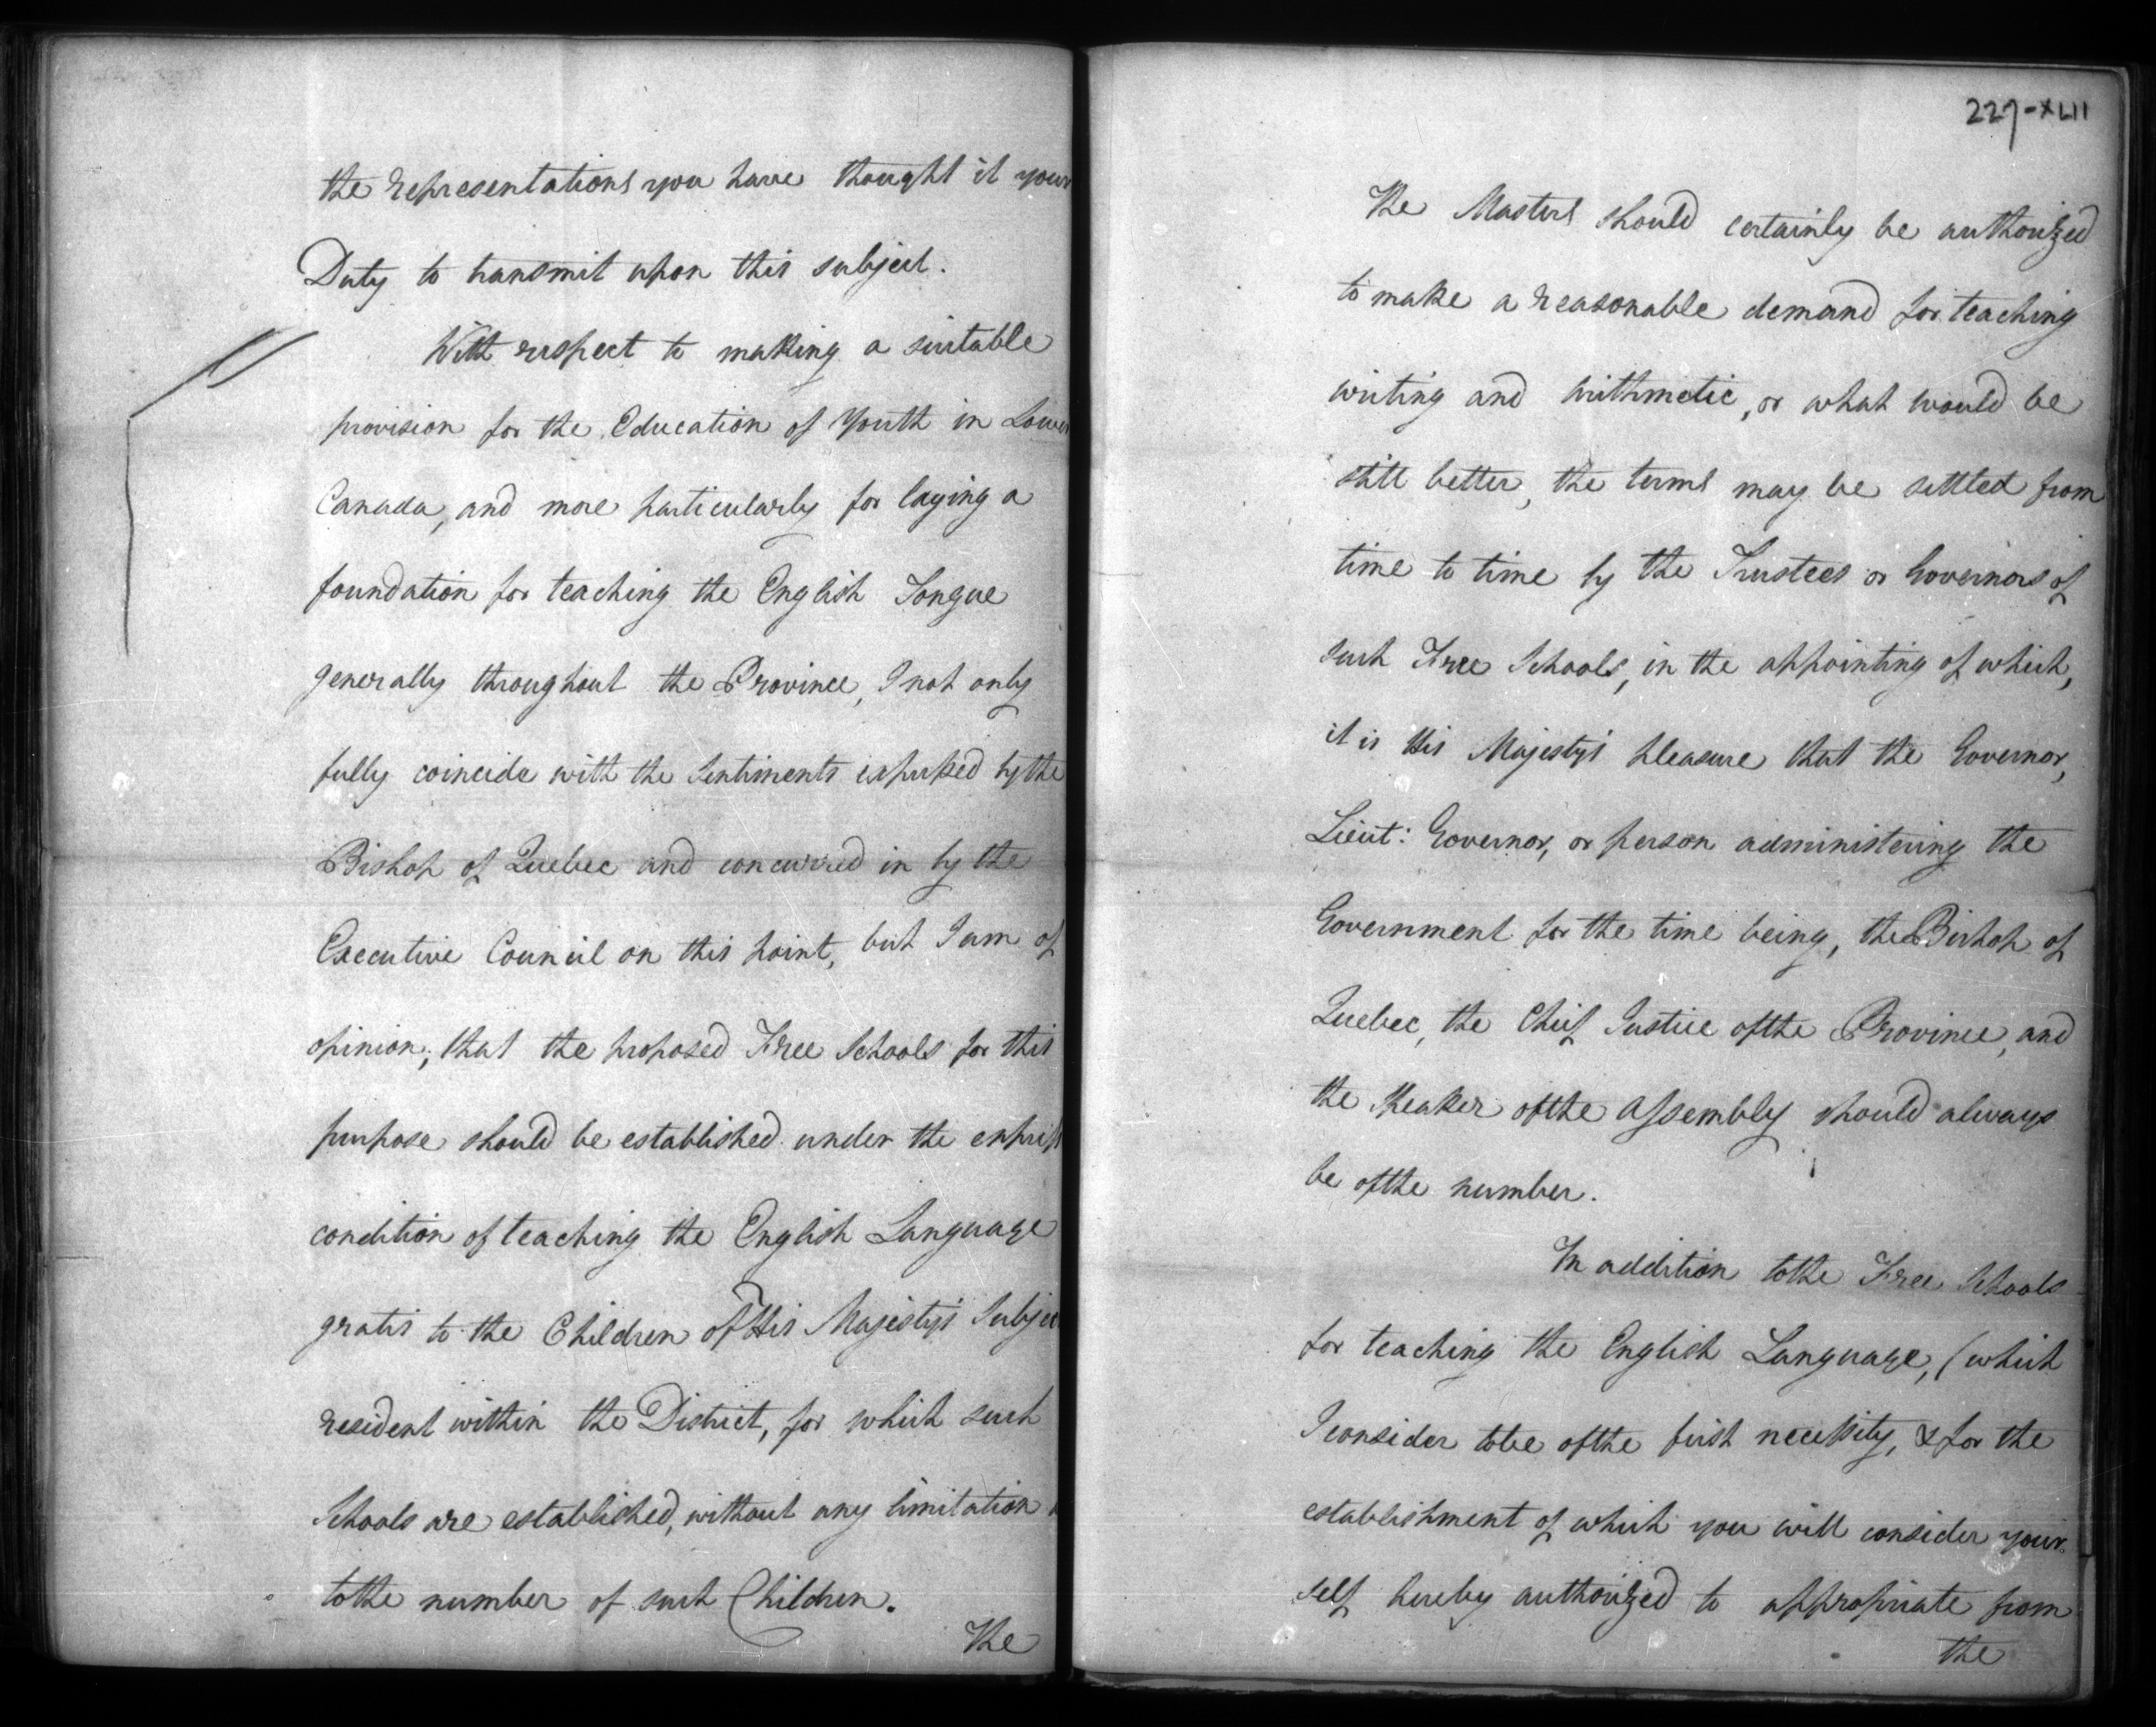 the representations you have thought it your
Duty to transmit upon this subject.
With respect to making a suitable
provision for the Education of Youth in Lower
Canada, and more particularly for laying a
foundation for teaching the English Tongue
generally throughout the Province, I not only
fully coincide with the Sentiments expressed by the
Bishop of Quebec and concurred in by the
Executive Council on this point, but I am of
opinion, that the proposed Free Schools for this
purpose should be established under the express
condition of teaching the English Language
gratis to the Children of His Majesty's Subjec
resident within the District, for which such
Schools are established, without any limitation
to the number of such Children.
The
227-XLII
The Masters should certainly be authorized
to make a reasonable demand for teaching
writing and Arithmetic, or what would be
still better, the terms may be settled from
time to time by the Trustees or Governors of
such Free Schools, in the appointing of which,
it is His Majesty's pleasure that the Governor,
Lieut: Governor, or person administering the
Government for the time being, the Bishop of
Quebec, the Chief Justice of the Province, and
the Speaker of the Assembly should always
be of the number.
In addition to the Free Schools
for teaching the English Language, (which
I consider to be of the first necessity, & for the
establishment of which you will consider your
self hereby authorized to appropriate from
the